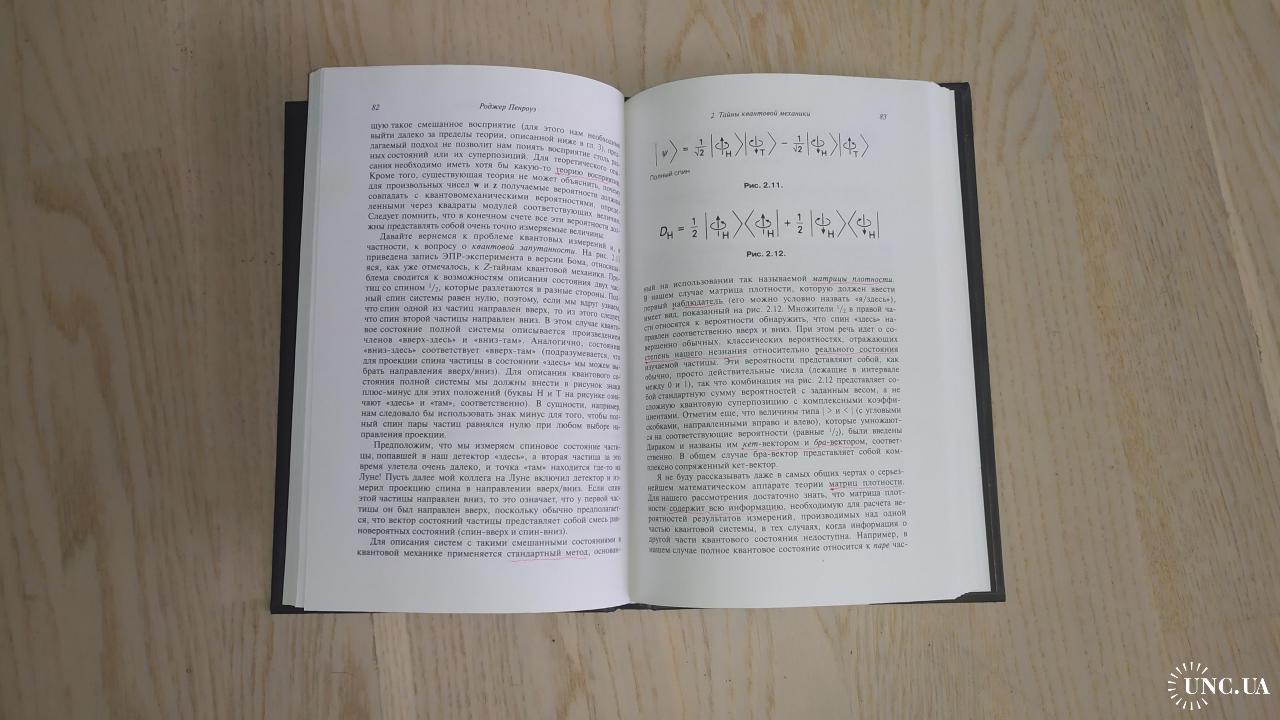 82
Роджер Пенроуз
щую такое смешанное восприятие (для этого нам необходимо
выйти далеко за пределы теории, описанной ниже в гл. 3),
лагаемый подход не позволит нам понять восприятие столь
ных состояний или их суперпозиций. Для теоретического
сания необходимо иметь хотя бы какую-то теорию восприятия.
Кроме того, существующая теория не может объяснить, почему
для произвольных чисел w и z получаемые вероятности должны
совпадать с квантовомеханическими вероятностями, опреде-
ленными через квадраты модулей соответствующих величин.
Следует помнить, что в конечном счете все эти вероятности дол-
жны представлять собой очень точно измеряемые величины.
Давайте вернемся к проблеме квантовых измерений и, в
частности, к вопросу о квантовой запутанности. На рис. 2.11
приведена запись ЭПР-эксперимента в версии Бома,
вся, как уже отмечалось, к Z-тайнам квантовой механики. Про-
блема сводится к возможностям описания состояний двух час-
тиц со спином 1/2, которые разлетаются в разные стороны. Пол-
ный спин системы равен нулю, поэтому, если мы вдруг узнаем,
что спин одной из частиц направлен вверх, то из этого следует,
что спин второй частицы направлен вниз. В этом случае кванто-
вое состояние полной системы описывается произведением
членов «вверх-здесь» и «вниз-там». Аналогично, состояние
«вниз-здесь» соответствует «вверх-там» (подразумевается, что
для проекции спина частицы в состоянии «здесь» мы можем вы-
брать направления вверх/вниз). Для описания квантового со-
стояния полной системы мы должны внести в рисунок знаки
плюс-минус для этих положений (буквы H и T на рисунке озна-
чают «здесь» и «там», соответственно). В сущности, например,
нам следовало бы использовать знак минус для того, чтобы пол-
ный спин пары частиц равнялся нулю при любом выборе на-
правления проекции.
Предположим, что мы измеряем спиновое состояние части-
цы, попавшей в наш детектор «здесь», а вторая частица за это
время улетела очень далеко, и точка «там» находится где-то на
Луне! Пусть далее мой коллега на Луне включил детектор и из-
мерил проекцию спина в направлении вверх/вниз. Если спин
этой частицы направлен вниз, то это означает, что у первой час-
тицы он был направлен вверх, поскольку обычно предполагает-
ся, что вектор состояний частицы представляет собой смесь рав-
новероятных состояний (спин-вверх и спин-вниз).
Для описания систем с такими смешанными состояниями в
квантовой механике применяется стандартный метод, основан-
2. Тайны квантовой механики
83
|ψ⟩ = 1/√2 | H⟩| T⟩ − 1/√2 | H⟩| T⟩
Полный спин
Рис. 2.11.
D_H = 1/2 | H⟩⟨ H| + 1/2 | H⟩⟨ H|
Рис. 2.12.
ный на использовании так называемой матрицы плотности.
В нашем случае матрица плотности, которую должен ввести
первый наблюдатель (его можно условно назвать «я/здесь»),
имеет вид, показанный на рис. 2.12. Множители 1/2 в правой ча-
сти относятся к вероятности обнаружить, что спин «здесь» на-
правлен соответственно вверх и вниз. При этом речь идет о со-
вершенно обычных, классических вероятностях, отражающих
степень нашего незнания относительно реального состояния
изучаемой частицы. Эти вероятности представляют собой, как
обычно, просто действительные числа (лежащие в интервале
между 0 и 1), так что комбинация на рис. 2.12 представляет со-
бой стандартную сумму вероятностей с заданным весом, а не
сложную квантовую суперпозицию с комплексными коэффи-
циентами. Отметим еще, что величины типа | > и < | (с угловыми
скобками, направленными вправо и влево), которые умножают-
ся на соответствующие вероятности (равные 1/2), были введены
Дираком и названы им кет-вектором и бра-вектором, соответ-
ственно. В общем случае бра-вектор представляет собой ком-
плексно сопряженный кет-вектор.
Я не буду рассказывать даже в самых общих чертах о серьез-
нейшем математическом аппарате теории матриц плотности.
Для нашего рассмотрения достаточно знать, что матрица плот-
ности содержит всю информацию, необходимую для расчета ве-
роятностей результатов измерений, производимых над одной
частью квантовой системы, в тех случаях, когда информация о
другой части квантового состояния недоступна. Например, в
нашем случае полное квантовое состояние относится к паре час-
UNC.UA